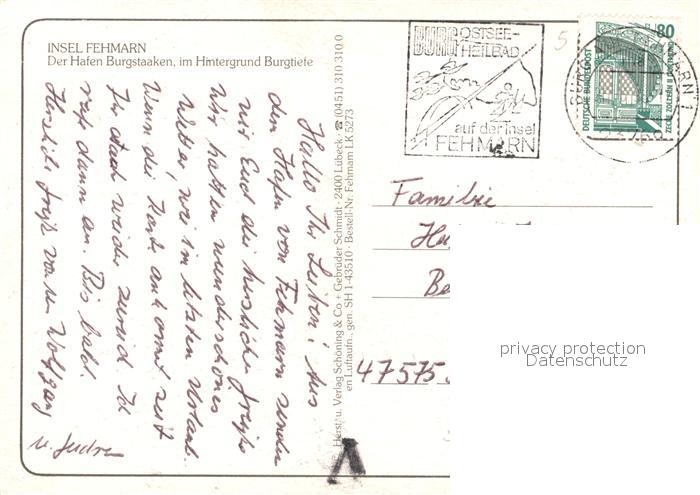 INSEL FEHMARN
Der Hafen Burgstaaken, im Hintergrund Burgtiefe
Hallo Ihr Lieben! Aus
dem Hafen von Fehmarn senden
wir Euch die herzliche Grüße
Wir hatten wunderschönes
Wetter, wie im letzten Urlaub.
Wenn die Karte ankommt seit
Ihr auch wieder zurück Ich
ruf dann an. Bis bald
Herzliche Grüße von Wolfgang
u.
Herst. u. Verlag Schöning & Co + Gebrüder Schmidt · 2400 Lübeck · ☎ (0451) 310 310 0
en Luftaufn., gen. SH 1-43510 · Bestell-Nr.: Fehmarn LK 5273
BURG OSTSEE-
HEILBAD
auf der Insel
FEHMARN
80
DEUTSCHE BUNDESPOST
ZECHE ZOLLERN II DORTMUND
5
Familie
Ha
Be
47575
privacy protection
Datenschutz